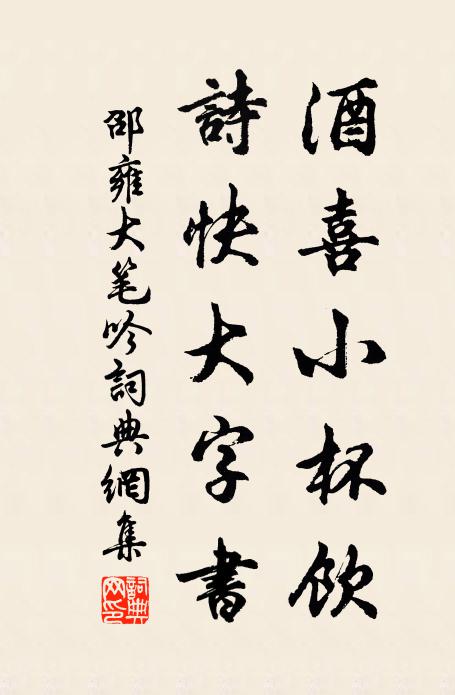 酒喜小杯飲
詩快大字書
邵雍大笔吟詞典網集
詞典网印